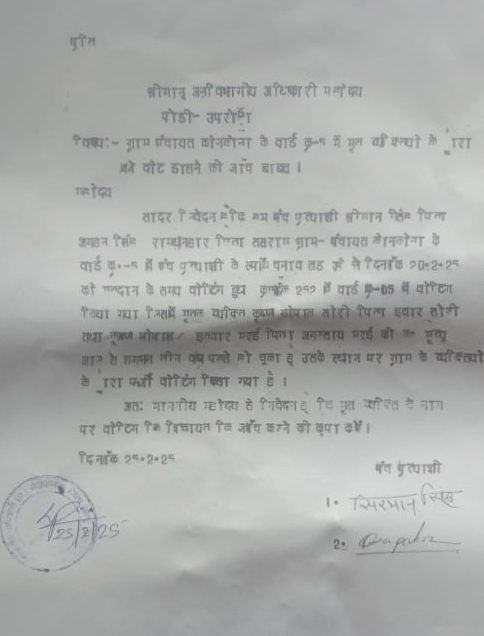 प्रति
श्रीमान् अनुविभागीय अधिकारी महोदय
पोडी- उपरोड़ा
विषय:- ग्राम पंचायत कोनकोना के वार्ड क्र-5 में मृत व्यक्तियो के द्वारा
वोट डालने की जाँच बाबत् ।
महोदय
सादर निवेदन है कि हम पंच प्रत्याशी श्रीमान सिंह पिता
सिंह पिता ग्राम- पंचायत कोनकोना के
वार्ड क्र.-5 में पंच प्रत्याशी के चुनाव लड़ रहे थे दिनाँक 20.2.25
को मतदान के समय वोटिंग बुथ क्रमाँक 252 में वार्ड क्र-05 में वोटिंग
किया गया जिसमें मृतक व्यक्ति कृष्ण गोपाल पिता
तथा कृष्ण गोपाल/ इतवार मरई पिता मरई की मृत्यु
आज से लगभग तीन वर्ष पहले हो चूका है उसके स्थान पर ग्राम के व्यक्तियो
के द्वारा फर्जी वोटिंग किया गया है ।
अतः माननीय महोदय से निवेदन है कि मृत व्यक्ति के नाम
पर वोटिंग कि शिकायत कि जाँच करने की कृपा करें।
दिनाँक 25.2.25
पंच प्रत्याशी
1. सिरमान सिंह
25/2/25
2.